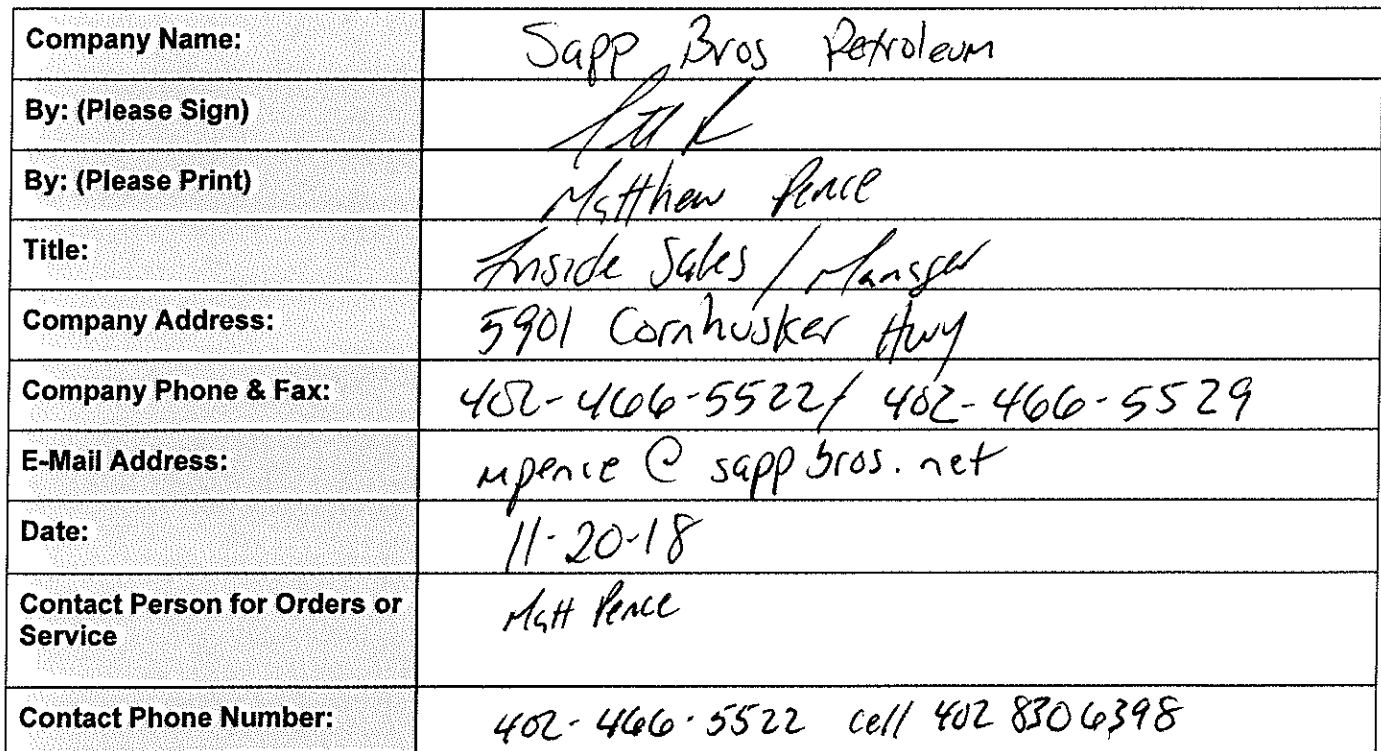 Company Name: Sapp Bros Petroleum
By: (Please Sign)
By: (Please Print) Matthew Pence
Title: Inside Sales / Manager
Company Address: 5901 Cornhusker Hwy
Company Phone & Fax: 402-466-5522/ 402-466-5529
E-Mail Address: mpence @ sappbros.net
Date: 11-20-18
Contact Person for Orders or
Service Matt Pence
Contact Phone Number: 402-466-5522 cell 402 8306398